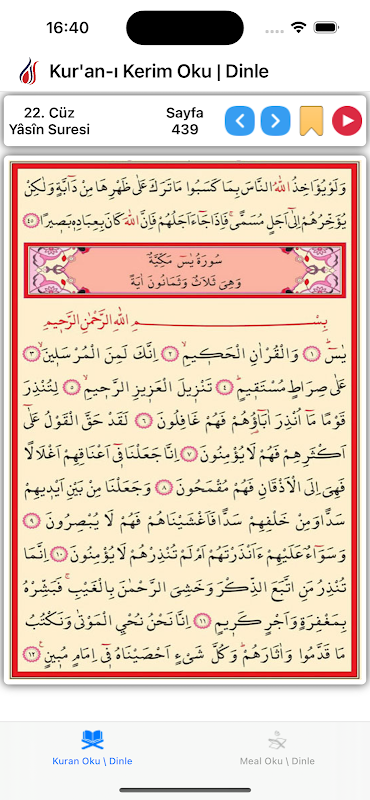 16:40
Kur'an-ı Kerim Oku | Dinle
22. Cüz
Yâsîn Suresi
Sayfa
439
وَلَوْ يُؤَاخِذُ اللّٰهُ النَّاسَ بِمَا كَسَبُوا مَا تَرَكَ عَلٰى ظَهْرِهَا مِنْ دَٓابَّةٍ وَلٰكِنْ
يُؤَخِّرُهُمْ اِلٰٓى اَجَلٍ مُسَمًّىۚ فَاِذَا جَٓاءَ اَجَلُهُمْ فَاِنَّ اللّٰهَ كَانَ بِعِبَادِه۪ بَص۪يراً ٤٥
سُورَةُ يٰسٓ مَكِّيَّةٌ
وَهِيَ ثَلَاثٌ وَثَمَانُونَ اٰيَةً
بِسْمِ اللّٰهِ الرَّحْمٰنِ الرَّح۪يمِ
يٰسٓۜ ١ وَالْقُرْاٰنِ الْحَك۪يمِۙ ٢ اِنَّكَ لَمِنَ الْمُرْسَل۪ينَۙ ٣
عَلٰى صِرَاطٍ مُسْتَق۪يمٍۜ ٤ تَنْز۪يلَ الْعَز۪يزِ الرَّح۪يمِۙ ٥ لِتُنْذِرَ
قَوْماً مَٓا اُنْذِرَ اٰبَٓاؤُ۬هُمْ فَهُمْ غَافِلُونَ ٦ لَقَدْ حَقَّ الْقَوْلُ عَلٰٓى
اَكْثَرِهِمْ فَهُمْ لَا يُؤْمِنُونَ ٧ اِنَّا جَعَلْنَا ف۪ٓي اَعْنَاقِهِمْ اَغْلَالاً
فَهِيَ اِلَى الْاَذْقَانِ فَهُمْ مُقْمَحُونَ ٨ وَجَعَلْنَا مِنْ بَيْنِ اَيْد۪يهِمْ
سَداًّ وَمِنْ خَلْفِهِمْ سَداًّ فَاَغْشَيْنَاهُمْ فَهُمْ لَا يُبْصِرُونَ ٩
وَسَوَٓاءٌ عَلَيْهِمْ ءَاَنْذَرْتَهُمْ اَمْ لَمْ تُنْذِرْهُمْ لَا يُؤْمِنُونَ ١٠ اِنَّمَا
تُنْذِرُ مَنِ اتَّبَعَ الذِّكْرَ وَخَشِيَ الرَّحْمٰنَ بِالْغَيْبِۚ فَبَشِّرْهُ
بِمَغْفِرَةٍ وَاَجْرٍ كَر۪يمٍ ١١ اِنَّا نَحْنُ نُحْيِ الْمَوْتٰى وَنَكْتُبُ
مَا قَدَّمُوا وَاٰثَارَهُمْۜ وَكُلَّ شَيْءٍ اَحْصَيْنَاهُ ف۪ٓي اِمَامٍ مُب۪ينٍ۟ ١٢
Kuran Oku \ Dinle
Meal Oku \ Dinle